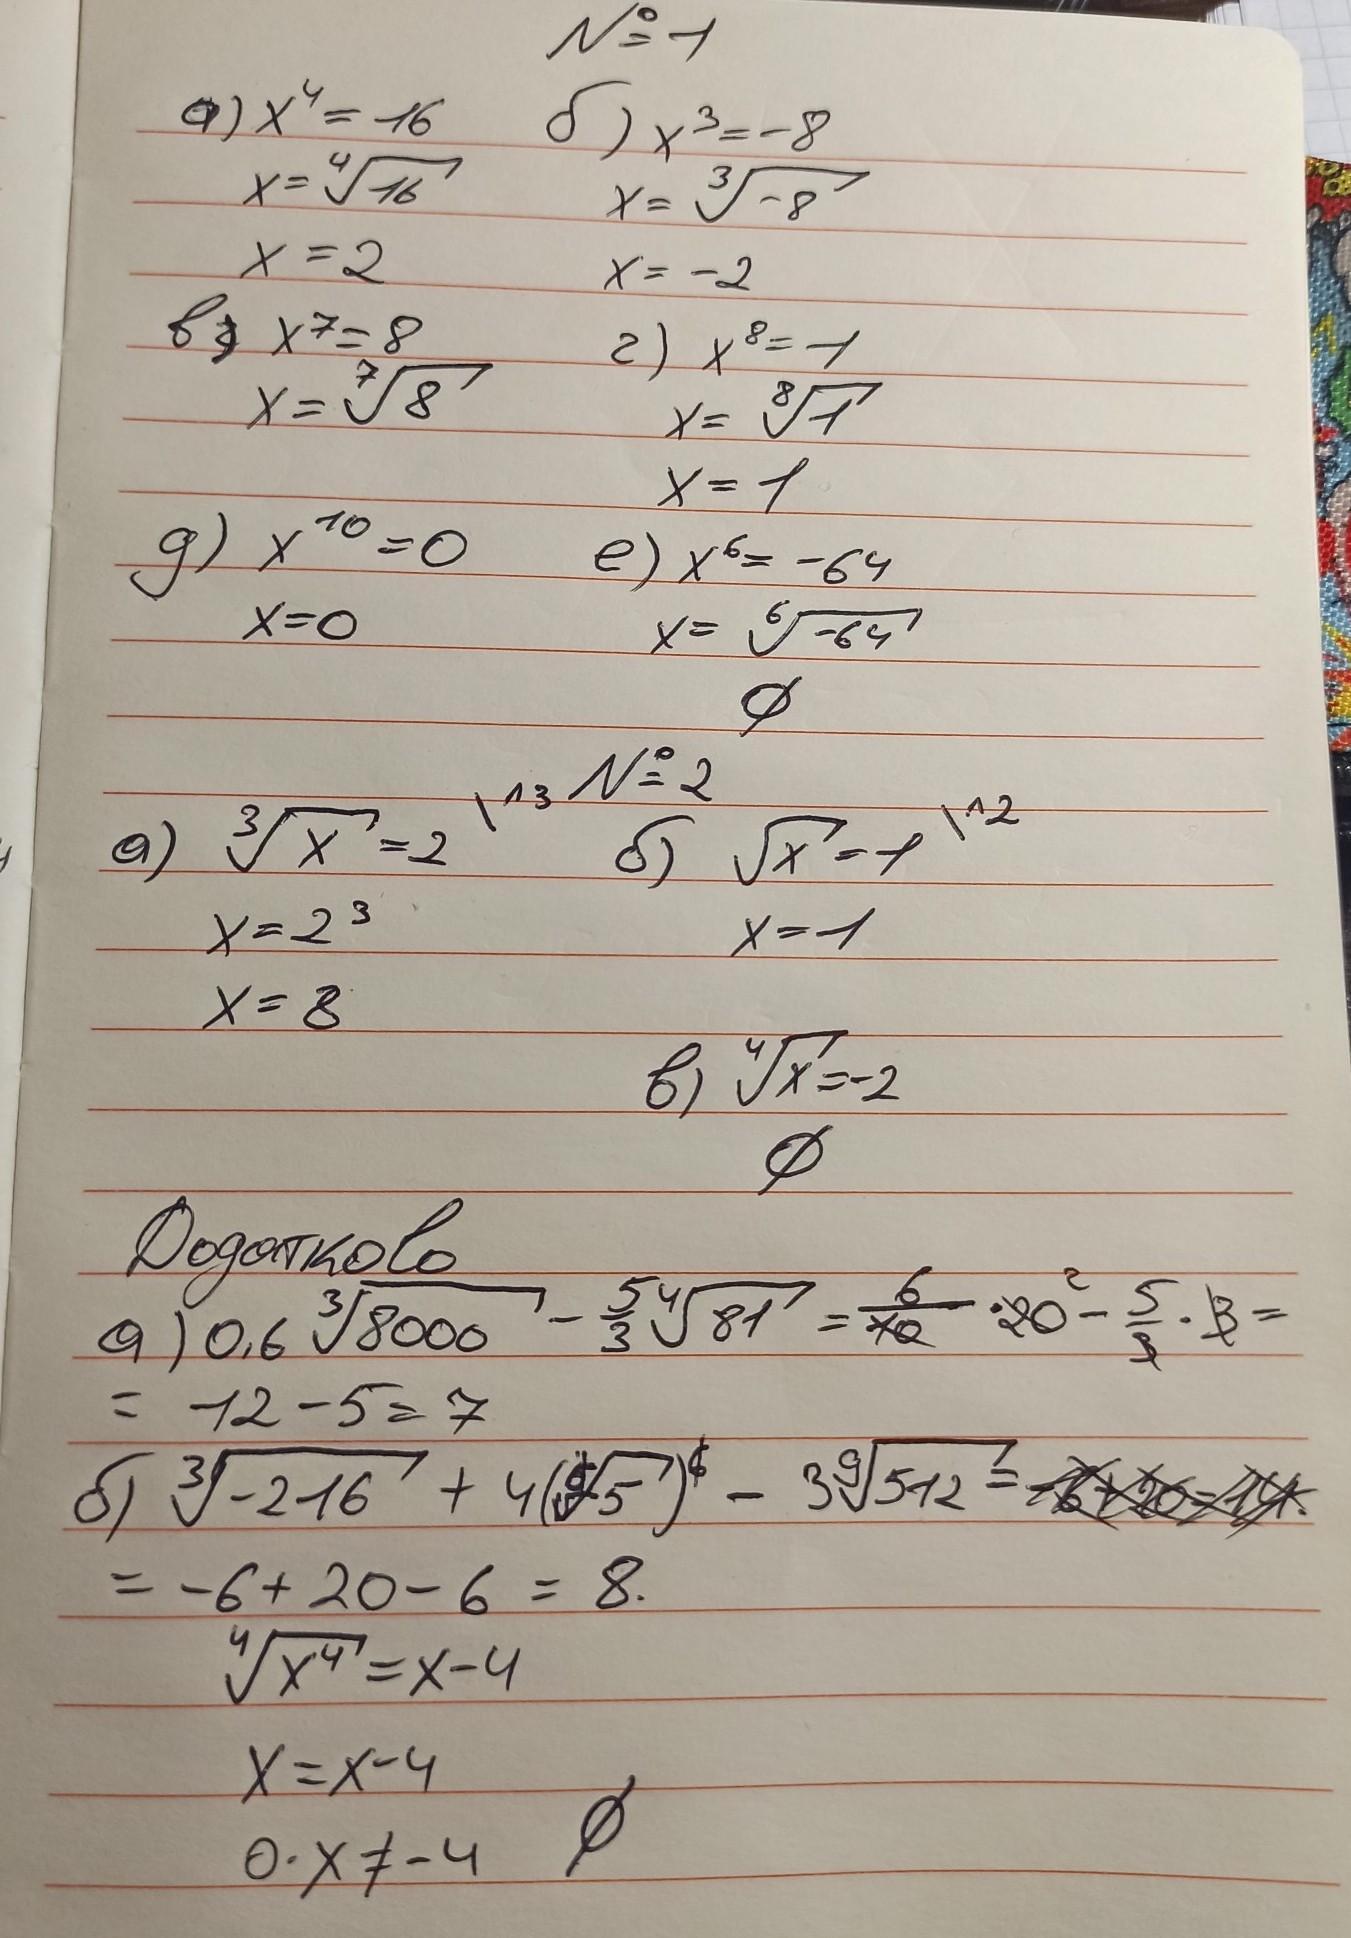 №1
а) x⁴ = 16 б) x³ = -8
x = ⁴√16 x = ³√-8
x = 2 x = -2
в) x⁷ = 8 г) x⁸ = 1
x = ⁷√8 x = ⁸√1
x = 1
д) x¹⁰ = 0 е) x⁶ = -64
x = 0 x = ⁶√-64
∅
№2
а) ³√x = 2 \^3 б) √x = 1 \^2
x = 2³ x = 1
x = 8
в) ⁴√x = -2
∅
Додатково
а) 0,6 ³√8000 - 5/3 ⁴√81 = 6/10 · 20² - 5/3 · 3 =
= 12 - 5 = 7
б) ³√-216 + 4(⁶√5)⁶ - 3 ⁹√512 =
= -6 + 20 - 6 = 8.
⁴√x⁴ = x - 4
x = x - 4
0 · x ≠ -4 ∅